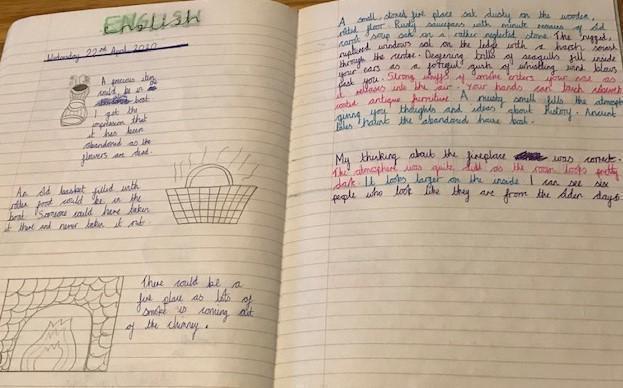 ENGLISH
Wednesday 22nd April 2020
A precious item
could be in a
boat
I got the
impression that
it has been
abandoned as the
flowers are dead.
An old basket filled with
rotten food could be in the
boat. Someone could have taken
it there and never taken it out.
There could be a
fire place as lots of
smoke is coming out
of the chimney.
A small stoned fire place sat dusty on the wooden,
rotted floor. Rusty saucepans with minute remains of old
carrot soup sat on a rather neglected stone. The rugged,
ruptured windows sat on the ledge with a harsh
through the centre. Deafening trills of seagulls fill inside
your ears as a forceful gush of whistling wind blows
past you. Strong whiffs of smoke enters your nose as
it releases into the air. Your hands can touch
coated antique furniture. A musty smell fills the atmosphere
giving you thoughts and ideas about history. Ancient
tales haunt the abandoned house boat.
My thinking about the fireplace was correct.
The atmosphere was quite as the room looks pretty
dark. It looks larger on the inside I can see six
people who look like they are from the olden days.